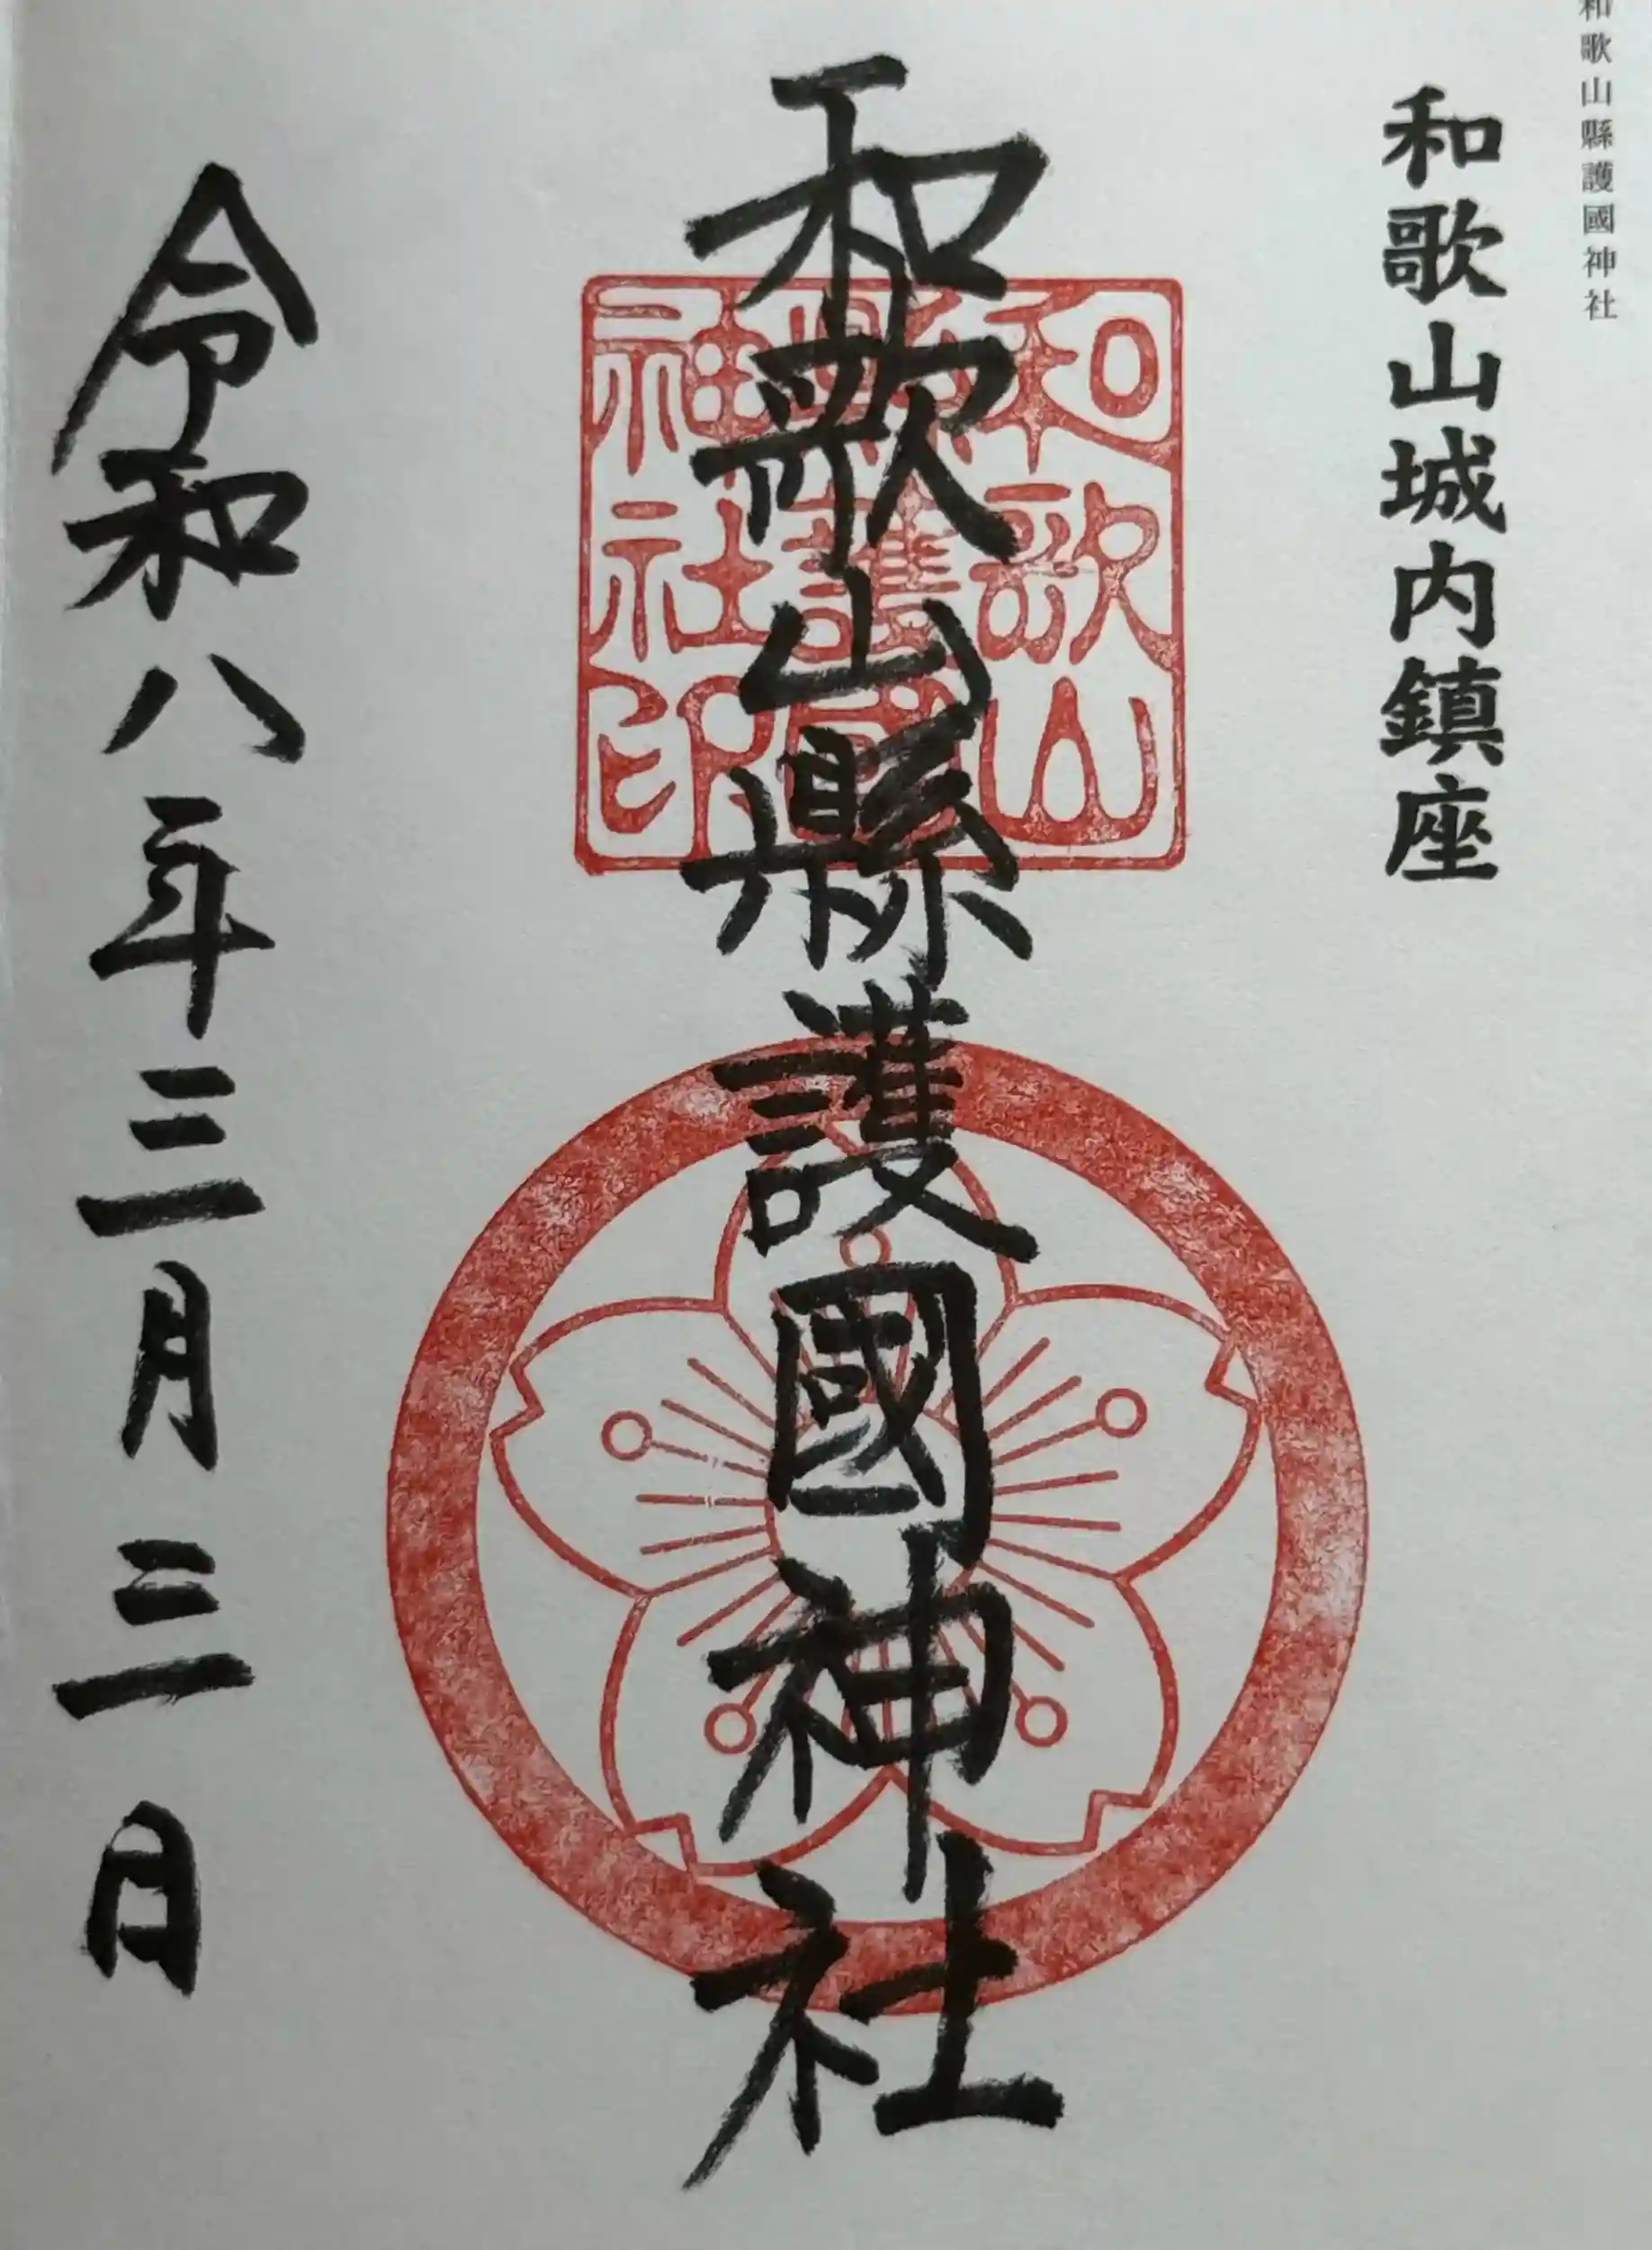 和歌山縣護國神社
和歌山城内鎮座
和歌山縣護國神社
和歌山
縣護國
神社印
令和八年三月三日